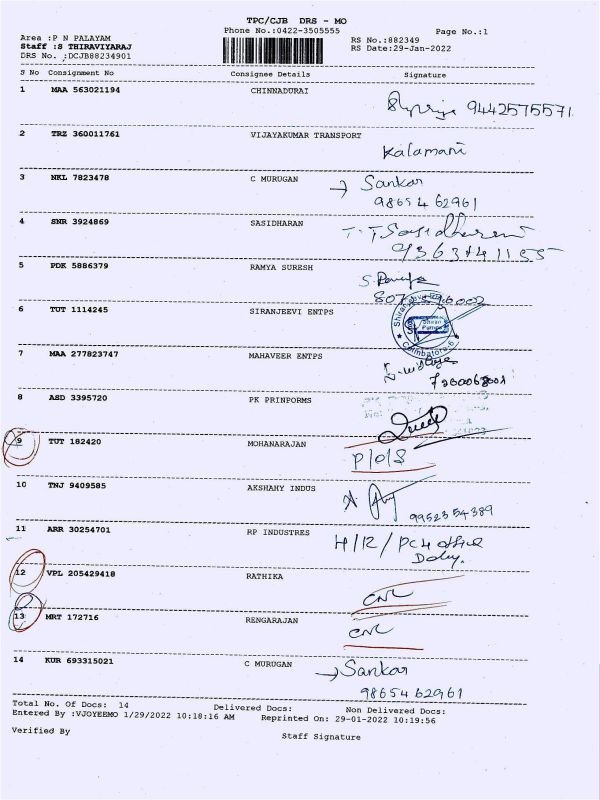 TPC/CJB DRS - MO
Phone No.:0422-3505555 Page No.:1
Area :P N PALAYAM RS No.:882349
Staff :S THIRAVIYARAJ RS Date:29-Jan-2022
DRS No. :DCJB88234901
S No Consignment No Consignee Details Signature
1 MAA 563021194 CHINNADURAI
9442575571
2 TRZ 360011761 VIJAYAKUMAR TRANSPORT
Kalamani
3 NKL 7823478 C MURUGAN → Sankar
98654 62961
4 SNR 3924869 SASIDHARAN
5 PDK 5886379 RAMYA SURESH
6 TUT 1114245 SIRANJEEVI ENTPS
Coimbatore-6
7 MAA 277823747 MAHAVEER ENTPS
8 ASD 3395720 PK PRINPORMS
9 TUT 182420 MOHANARAJAN
P/O/S
10 TNJ 9409585 AKSHAHY INDUS
9952354389
11 ARR 30254701 RP INDUSTRES H/R/
12 VPL 205429418 RATHIKA
CNR
13 MRT 172716 RENGARAJAN
CNR
14 KUR 693315021 C MURUGAN → Sankar
98654 62961
Total No. Of Docs: 14 Delivered Docs: Non Delivered Docs:
Entered By :VJOYEEMO 1/29/2022 10:18:16 AM Reprinted On: 29-01-2022 10:19:56
Verified By Staff Signature